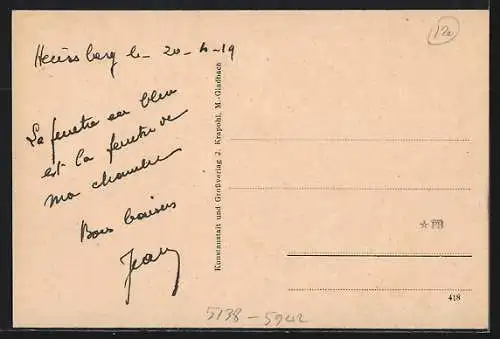 Heinsberg le 20-4-19
La fenetre en bleu
est la fenetre de
ma chambre
Bons baisers
Jean
Kunstanstalt und Großverlag J. Krapohl, M.-Gladbach
418
5138-5942